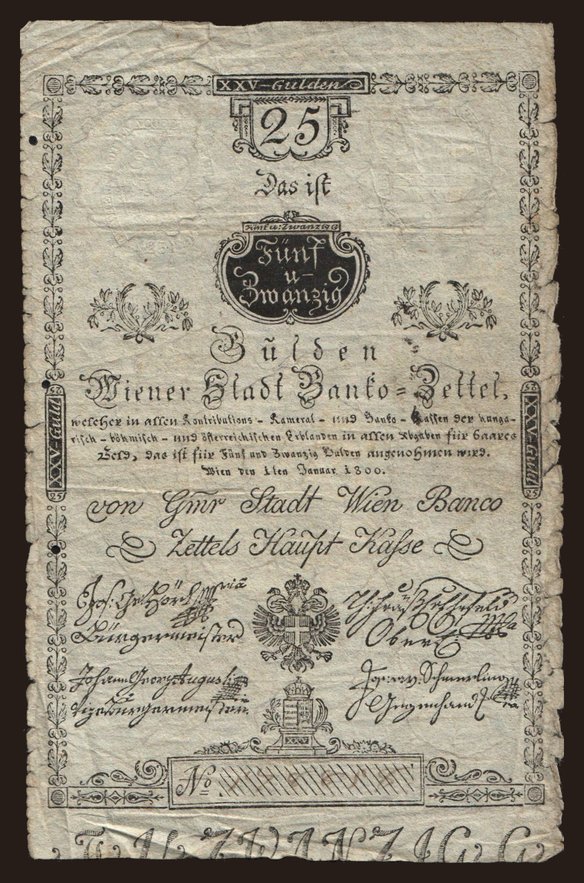 XXV-Gulden
25
Das ist
Fünf u: Zwanzig G
Fünf
u-
Zwanzig
Gulden
Wiener Stadt Banko=Zettel,
welcher in allen Kontributions- Kameral- und Banko-Kassen der hunga-
risch-böhmisch- und österreichischen Erblanden in allen Abgaben für baares
Geld, das ist für Fünf und Zwanzig Gulden angenohmen wird.
Wien den 1ten Januar 1800.
XXV-Guld
25
XXV-Guld
25
von Gmr Stadt Wien Banco
Zettels Haupt Kasse
Jos: Ge: Hörl
Bürgermeister
Ober E
Johann Georg Augusti
Vizebürgermeister
v. Schmerling
Gegenhand
XXV
No
ZWANZIG G